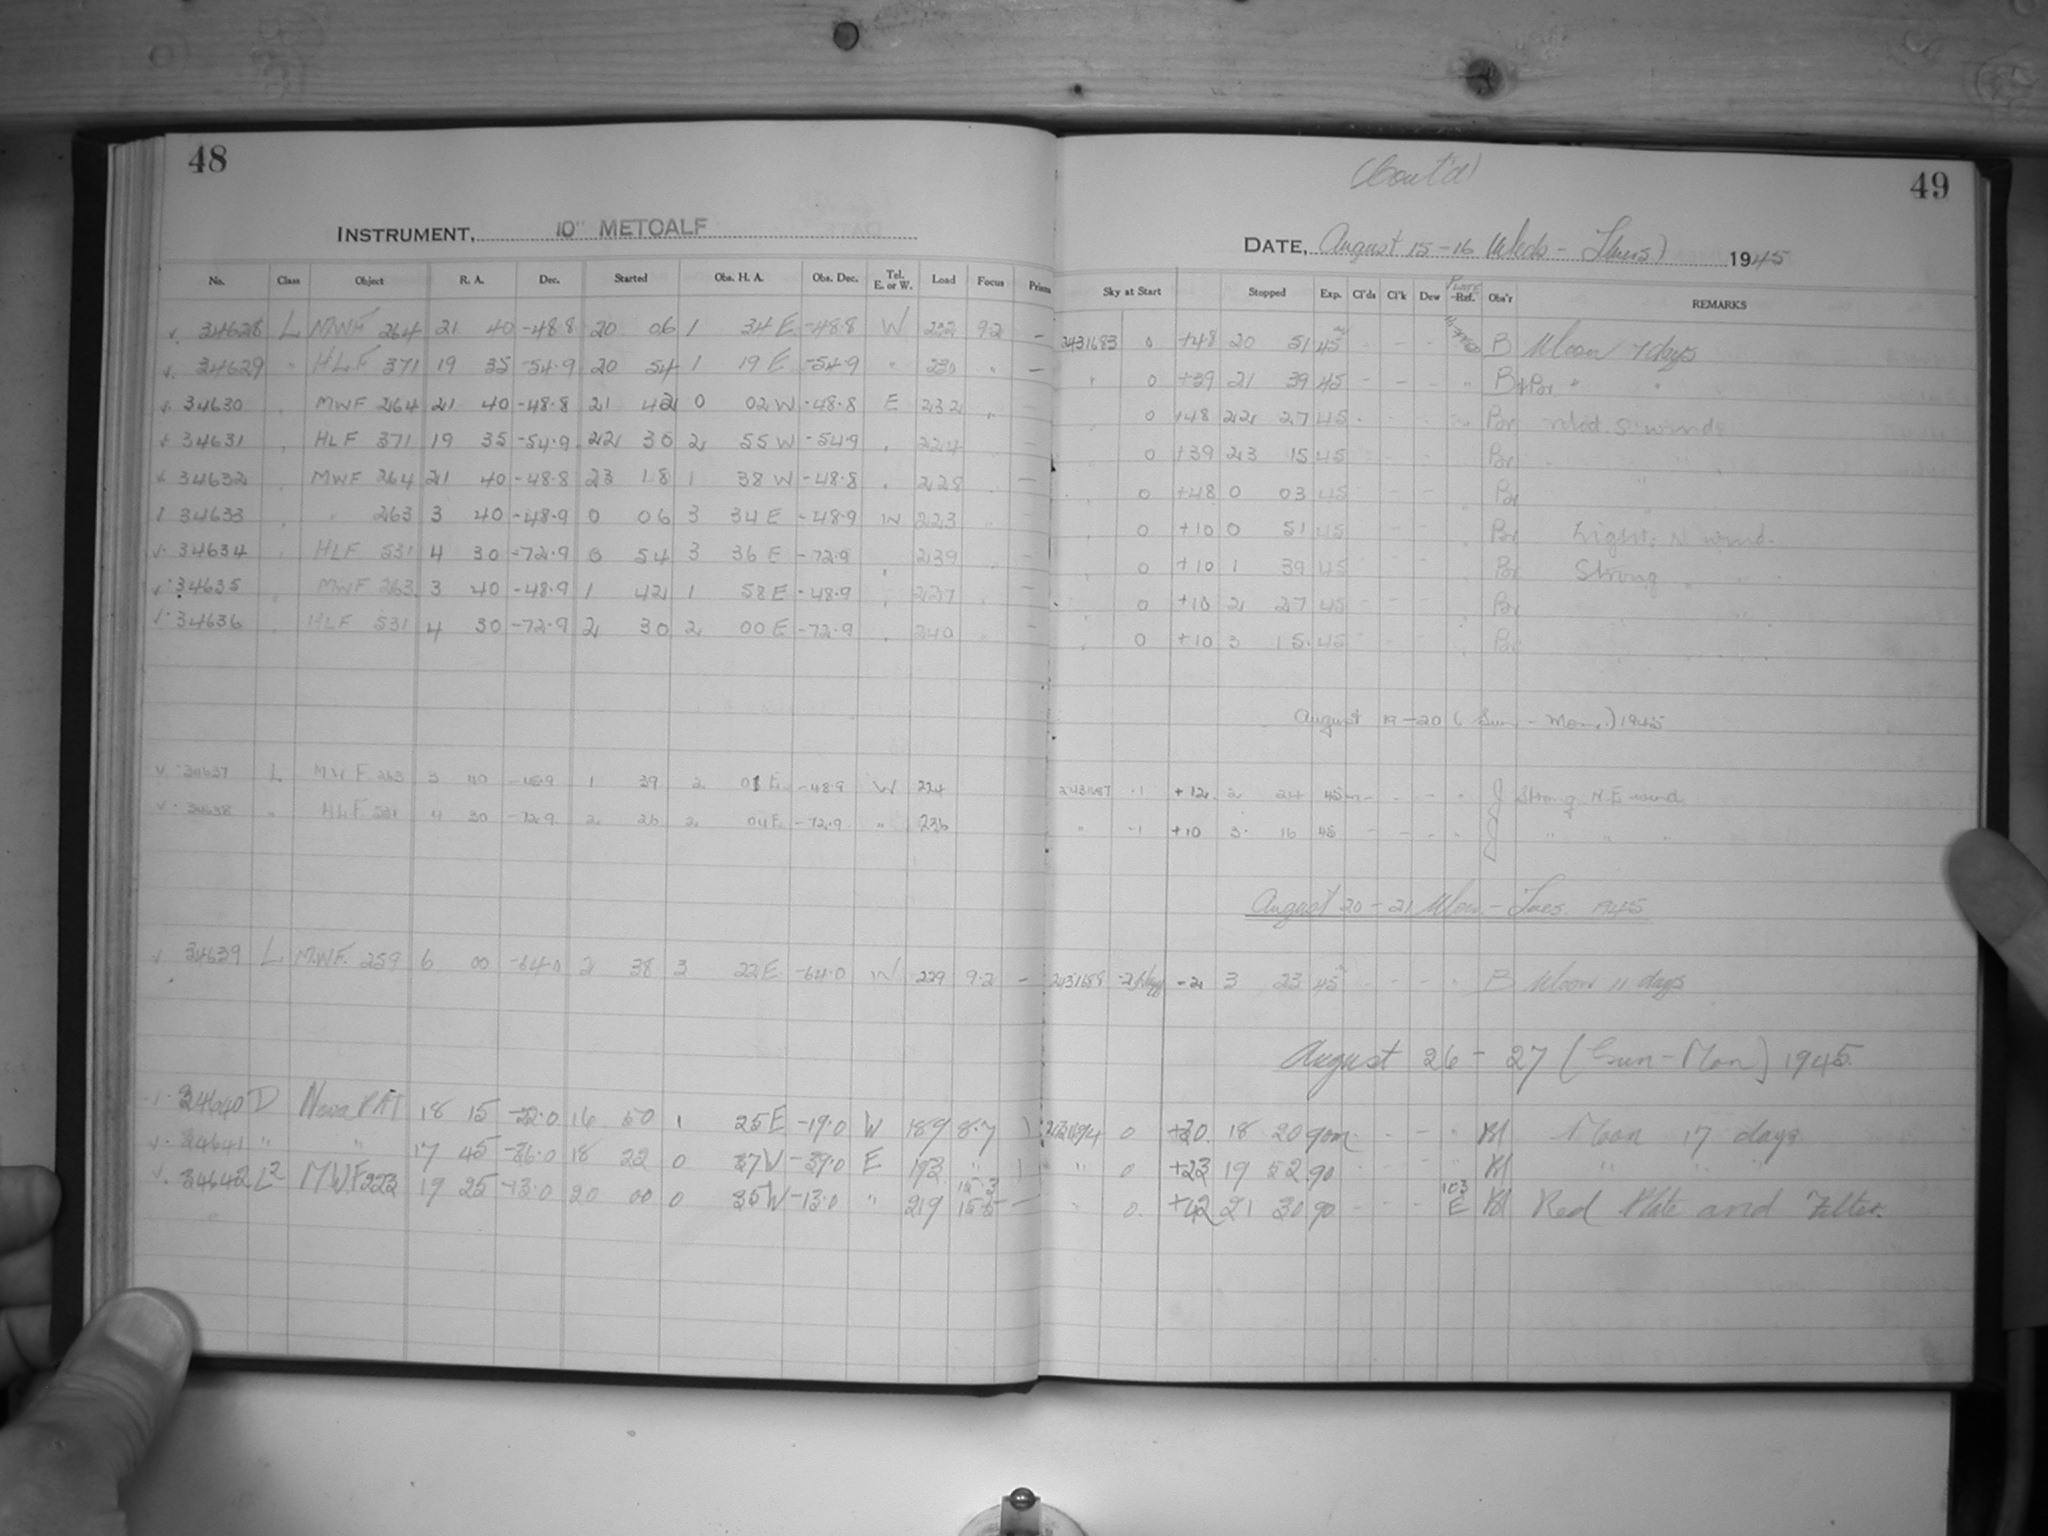 48
INSTRUMENT, 10" METCALF
No. Class Object R. A. Dec. Started Obs. H. A. Obs. Dec. Tel. E. or W. Load Focus Prism
34628 L MWF 264 21 40 -48.8 20 06 1 34 E -48.8 W 232 9.2 -
34629 " HLF 371 19 35 -54.9 20 54 1 19 E -54.9 " 230 " -
34630 MWF 264 21 40 -48.8 21 42 0 02 W -48.8 E 232 -
34631 HLF 371 19 35 -54.9 22 30 2 55 W -54.9 224 -
34632 MWF 264 21 40 -48.8 23 18 1 38 W -48.8 228 -
34633 " 263 3 40 -48.9 0 06 3 34 E -48.9 W 223 -
34634 HLF 531 4 30 -72.9 0 54 3 36 E -72.9 239 -
34635 MWF 263 3 40 -48.9 1 42 1 58 E -48.9 227 -
34636 HLF 531 4 30 -72.9 2 30 2 00 E -72.9 240 -
34637 L MWF 263 3 40 -48.9 1 39 2 01 E -48.9 W 224
34638 " HLF 531 4 30 -72.9 2 26 2 04 E -72.9 " 236
34639 L MWF. 259 6 00 -64.0 2 38 3 22 E -64.0 W 229 9.2 -
34640 D Nova 18 15 -22.0 16 50 1 25 E -19.0 W 189 8.7 1
34641 " " 17 45 -36.0 18 22 0 37 W -39.0 E 193 " 1
34642 L2 MWF 223 19 25 -13.0 20 00 0 35 W -13.0 " 219 -
49
(Cont'd)
DATE, August 15-16 Weds - Thurs) 1945
Sky at Start Stopped Exp. Cl'ds Cl'k Dew PLATE Ref. Obs'r REMARKS
2431683 0 +48 20 51 45 - - - B Moon 7 days
" 0 +39 21 39 45 - - - " B+Por " "
0 +48 22 27 45 - - - Por Mod. S. wind
0 +39 23 15 45 - - - Por
0 +48 0 03 45 - - - Por
0 +10 0 51 45 - - - Por Light N wind.
0 +10 1 39 45 - - - Por Strong " "
0 +10 2 27 45 - - - Por
0 +10 3 15 45 - - - Por
August 19-20 (Sun - Mon.) 1945
2431687 -1 +12 2 24 45m - - - " J Strong N.E wind
" -1 +10 3 16 45 - - - " J " " "
August 20-21 Mon - Tues. 1945
2431688 -2 -2 3 23 45 - - - " B Moon 11 days
August 26-27 (Sun - Mon) 1945.
2431694 0 +20 18 20 90m - - - " Moon 17 days
" 0 +23 19 52 90 - - - " " "
" 0 +42 21 30 90 - - - 103 E Red Plate and Filter.